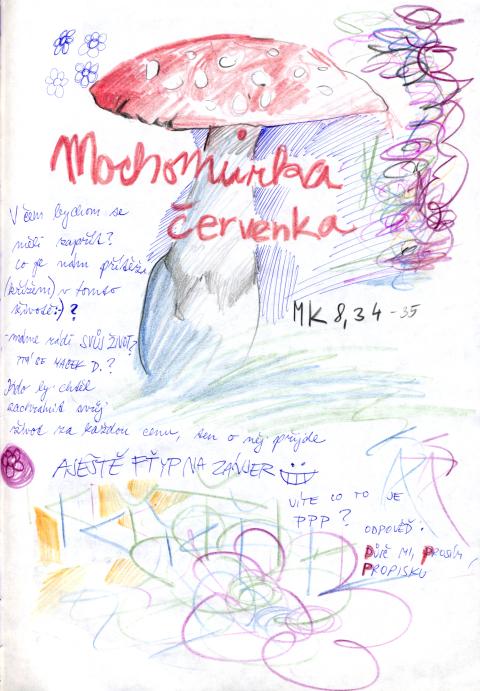 Mochomurka
červenka
V čem bychom se
měli zapřít?
co je nám přítěží
(křížem) v tomto
životě:) ?
MK 8,34-35
- máme rádi SVŮJ ŽIVOT?
PTÁ SE MACEK D.?
Kdo by chtěl
zachránit svůj
život za každou cenu, ten o něj přijde
A JEŠTĚ FŤYP NA ZÁVJER
VÍTE CO TO JE
PPP?
ODPOVĚĎ:
PŮJČ MI, PROSÍM,
PROPISKU